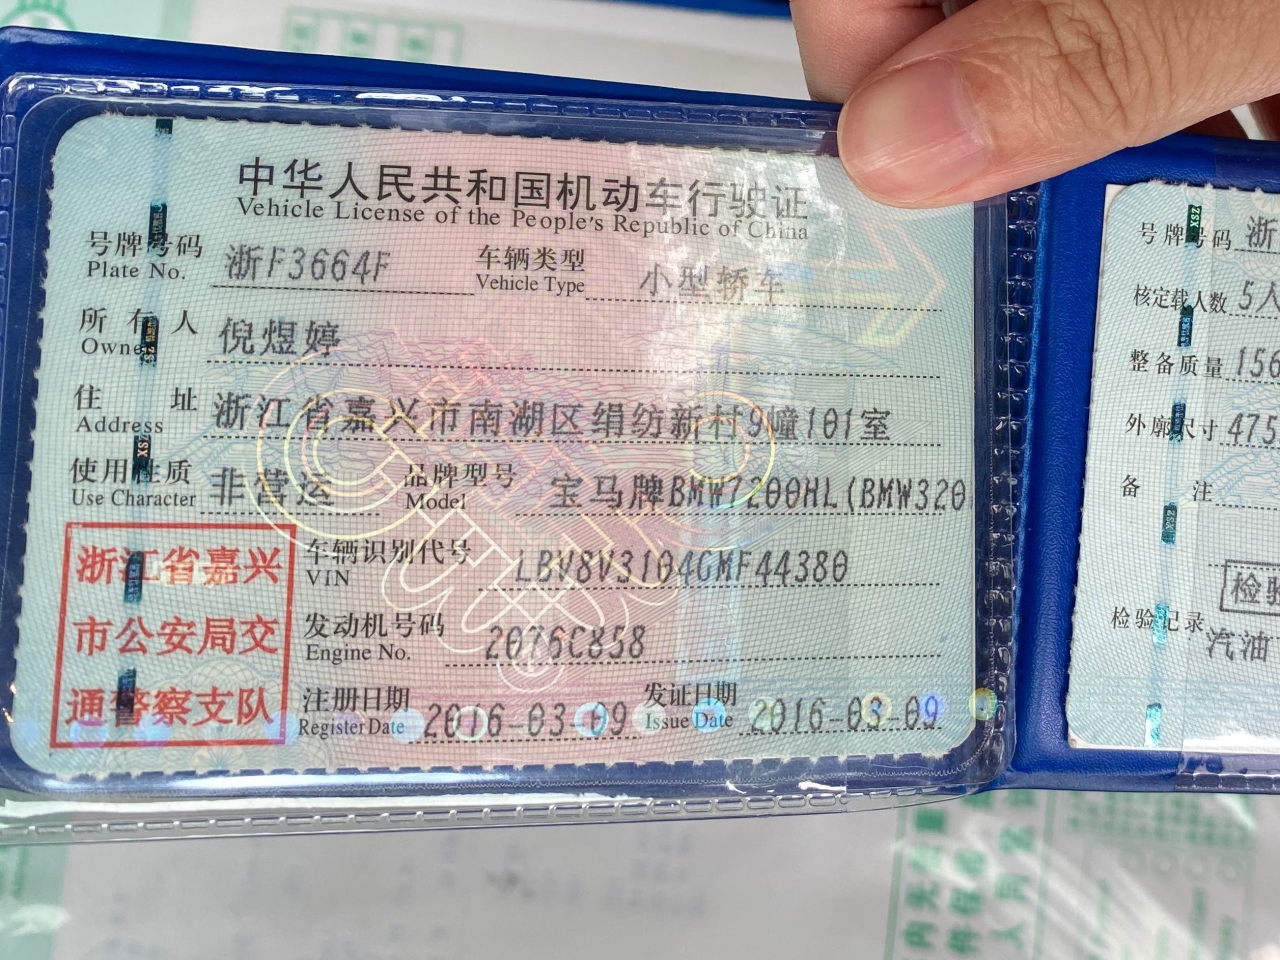 中华人民共和国机动车行驶证
Vehicle License of the People's Republic of China
号牌号码 浙F3664F 车辆类型 小型轿车
Plate No. Vehicle Type
所有人 倪煜婷
Owner
住址 浙江省嘉兴市南湖区绢纺新村9幢101室
Address
使用性质 非营运 品牌型号 宝马牌BMW7200HL(BMW320
Use Character Model
车辆识别代号 LBV8V3104GMF44380
VIN
发动机号码 2076C858
Engine No.
注册日期 2016-03-09 发证日期 2016-03-09
Register Date Issue Date
浙江省嘉兴
市公安局交
通警察支队
号牌号码 浙
核定载人数 5人
整备质量 156
外廓尺寸 475
备注
检验
检验记录 汽油